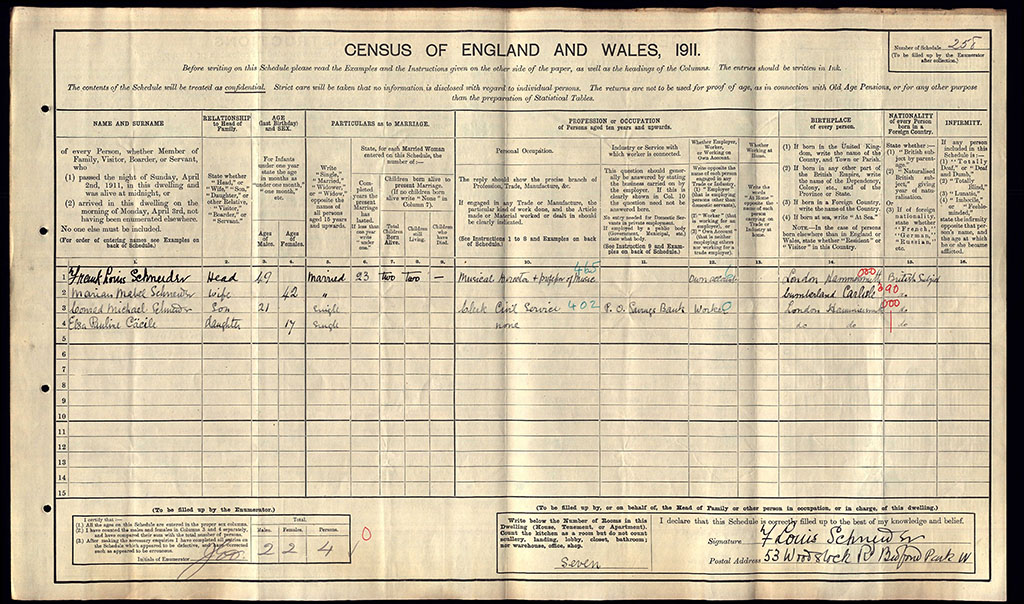 CENSUS OF ENGLAND AND WALES, 1911.
Number of Schedule 258
(To be filled up by the Enumerator after collection.)
Before writing on this Schedule please read the Examples and the Instructions given on the other side of the paper, as well as the headings of the Columns. The entries should be written in Ink.
The contents of the Schedule will be treated as confidential. Strict care will be taken that no information is disclosed with regard to individual persons. The returns are not to be used for proof of age, as in connection with Old Age Pensions, or for any other purpose
than the preparation of Statistical Tables.
NAME AND SURNAME
RELATIONSHIP to Head of Family.
AGE (last Birthday) and SEX.
PARTICULARS as to MARRIAGE.
PROFESSION or OCCUPATION of Persons aged ten years and upwards.
BIRTHPLACE of every person.
NATIONALITY of every Person born in a Foreign Country.
INFIRMITY.
of every Person, whether Member of
Family, Visitor, Boarder, or Servant,
who
(1) passed the night of Sunday, April
2nd, 1911, in this dwelling and
was alive at midnight, or
(2) arrived in this dwelling on the
morning of Monday, April 3rd, not
having been enumerated elsewhere.
No one else must be included.
(For order of entering names see Examples on back of Schedule.)
State whether "Head," or "Wife," "Son," "Daughter," or other Relative, "Visitor," "Boarder," or "Servant."
For Infants under one year state the age in months as "under one month," "one month," etc.
Ages of Males.
Ages of Females.
Write "Single," "Married," "Widower," or "Widow," opposite the names of all persons aged 15 years and upwards.
State, for each Married Woman entered on this Schedule, the number of:—
Completed years the present Marriage has lasted. If less than one year write "under one."
Children born alive to present Marriage. (If no children born alive write "None" in Column 7).
Total Children Born Alive.
Children still Living.
Children who have Died.
Personal Occupation.
The reply should show the precise branch of Profession, Trade, Manufacture, &c.
If engaged in any Trade or Manufacture, the particular kind of work done, and the Article made or Material worked or dealt in should be clearly indicated.
(See Instructions 1 to 8 and Examples on back of Schedule.)
Industry or Service with which worker is connected.
This question should generally be answered by stating the business carried on by the employer. If this is clearly shown in Col. 10 the question need not be answered here.
No entry needed for Domestic Servants in private employment. If employed by a public body (Government, Municipal, etc.) state what body.
(See Instruction 9 and Examples on back of Schedule.)
Whether Employer, Worker, or Working on Own Account.
Whether Working at Home.
Write the words "At Home" opposite the name of each person carrying on Trade or Industry at home.
(1) If born in the United Kingdom, write the name of the County, and Town or Parish.
(2) If born in any other part of the British Empire, write the name of the Dependency, Colony, etc., and of the Province or State.
(3) If born in a Foreign Country, write the name of the Country.
(4) If born at sea, write "At Sea."
NOTE.—In the case of persons born elsewhere than in England or Wales, state whether "Resident" or "Visitor" in this Country.
State whether:—
(1) "British subject by parentage."
(2) "Naturalised British subject," giving year of naturalisation.
Or
(3) If of foreign nationality, state whether "French," "German," "Russian," etc.
If any person included in this Schedule is:—
(1) "Totally Deaf" or "Deaf and Dumb,"
(2) "Totally Blind,"
(3) "Lunatic,"
(4) "Imbecile," or "Feeble-minded,"
state the infirmity opposite that person's name, and the age at which he or she became afflicted.
1. 2. 3. 4. 5. 6. 7. 8. 9. 10. 11. 12. 13. 14. 15. 16.
1 Frank Louis Schneider Head 49 Married 23 two two — Musical Director & professor of Music 465 Own account London Hammersmith 000 British Subject
2 Marian Mabel Schneider Wife 42 " Cumberland Carlisle 390 "
3 Leonard Michael Schneider Son 21 Single Clerk Civil Service 402 P. O. Savings Bank Worker London Hammersmith 000 do
4 Elsa Pauline Cäcile daughter 17 Single none do do do
5
6
7
8
9
10
11
12
13
14
15
(To be filled up by the Enumerator.)
I certify that:—
(1) All the ages on this Schedule are entered in the proper sex columns.
(2) I have counted the males and females in Columns 3 and 4 separately, and have compared their sum with the total number of persons.
(3) After making the necessary enquiries I have completed all entries on the Schedule which appeared to be defective, and have corrected such as appeared to be erroneous.
Initials of Enumerator
Total.
Males. Females. Persons.
2 2 4
0
(To be filled up by, or on behalf of, the Head of Family or other person in occupation, or in charge, of this dwelling.)
Write below the Number of Rooms in this Dwelling (House, Tenement, or Apartment). Count the kitchen as a room but do not count scullery, landing, lobby, closet, bathroom; nor warehouse, office, shop.
Seven
I declare that this Schedule is correctly filled up to the best of my knowledge and belief.
Signature F Louis Schneider
Postal Address 53 Woodstock Rd Bedford Park W